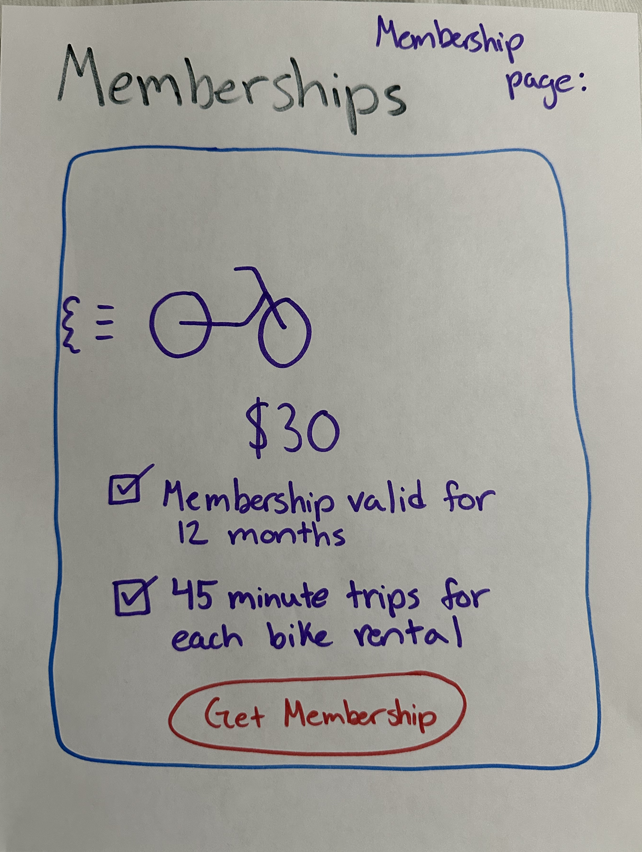 Membership
page:
Memberships
$30
Membership valid for
12 months
45 minute trips for
each bike rental
Get Membership